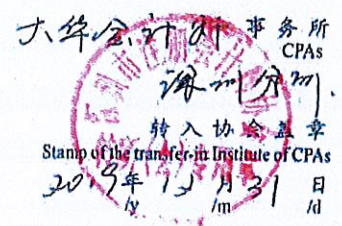 大华会计师事务所
CPAs
深圳分所
转入协会盖章
Stamp of the transfer-in Institute of CPAs
2019年12月31日
/y /m /d